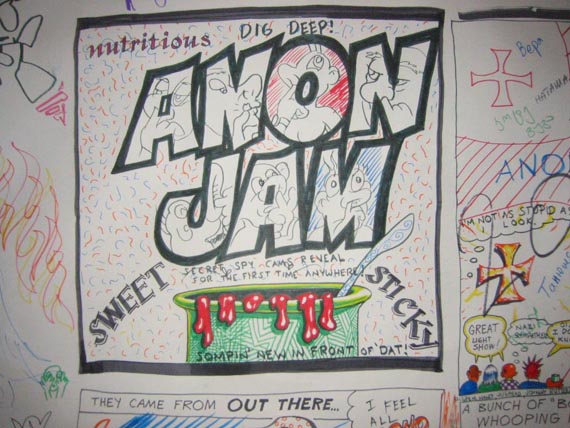 nutritious
DIG DEEP!
ANON
JAM
SECRET SPY CAMS REVEAL
FOR THE FIRST TIME ANYWHERE!
SWEET
STICKY
SOMPIN' NEW IN FRONT OF 'DAT!
THEY CAME FROM OUT THERE...
I FEEL
ALL
Вера
НАТАША
ANO
I'M NOT AS STUPID AS
LOOK...
GREAT
LIGHT
SHOW!
NAZI
I DO
KN
A BUNCH OF "BO
WHOOPING